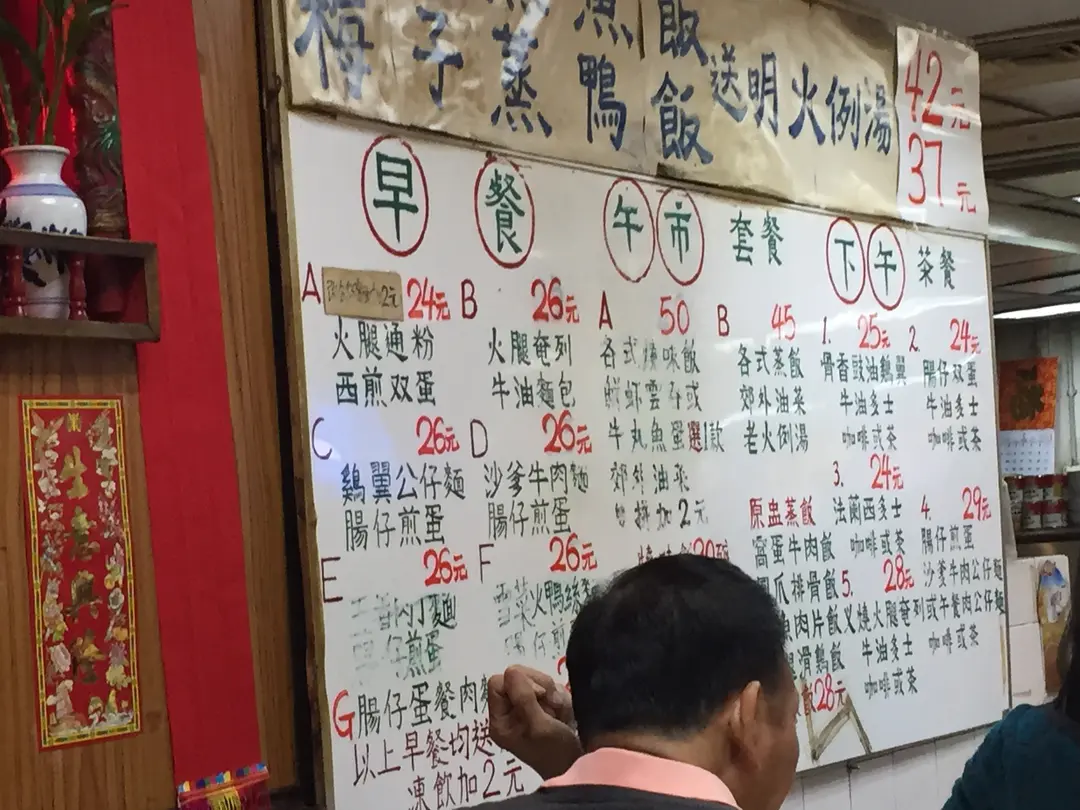 子蒸鴨飯送明火例湯
42元
37元
早餐
A 24元
火腿通粉
西煎双蛋
B 26元
火腿奄列
牛油麵包
C 26元
鷄翼公仔麵
腸仔煎蛋
D 26元
沙爹牛肉麵
腸仔煎蛋
E 26元
肉丁麵
仔煎蛋
F 26元
雪菜火鴨絲
G 腸仔蛋餐肉
以上早餐均送
凍飲加2元
午市套餐
A 50
各式燒味飯
鮮虾雲吞或
牛丸魚蛋選1款
郊外油菜
加2元
B 45
各式蒸飯
郊外油菜
老火例湯
原盅蒸飯
窩蛋牛肉飯
鳳爪排骨飯
魚肉片飯
滑鷄飯
28元
下午茶餐
1. 25元
骨香豉油鷄翼
牛油多士
咖啡或茶
2. 24元
腸仔双蛋
牛油多士
咖啡或茶
3. 24元
法蘭西多士
咖啡或茶
4. 29元
腸仔煎蛋
沙爹牛肉公仔麵
或午餐肉公仔麵
咖啡或茶
5. 28元
叉燒火腿奄列
牛油多士
咖啡或茶
生意興隆